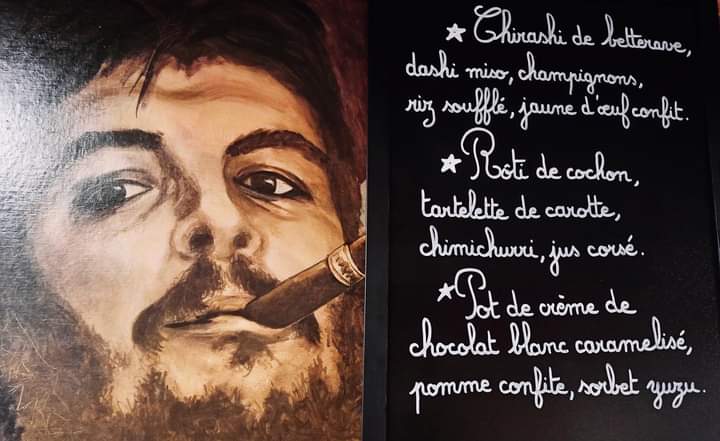 ★ Chirashi de betterave,
dashi miso, champignons,
riz soufflé, jaune d'œuf confit.
★ Rôti de cochon,
tartelette de carotte,
chimichurri, jus corsé.
★ Pot de crème de
chocolat blanc caramelisé,
pomme confite, sorbet yuzu.